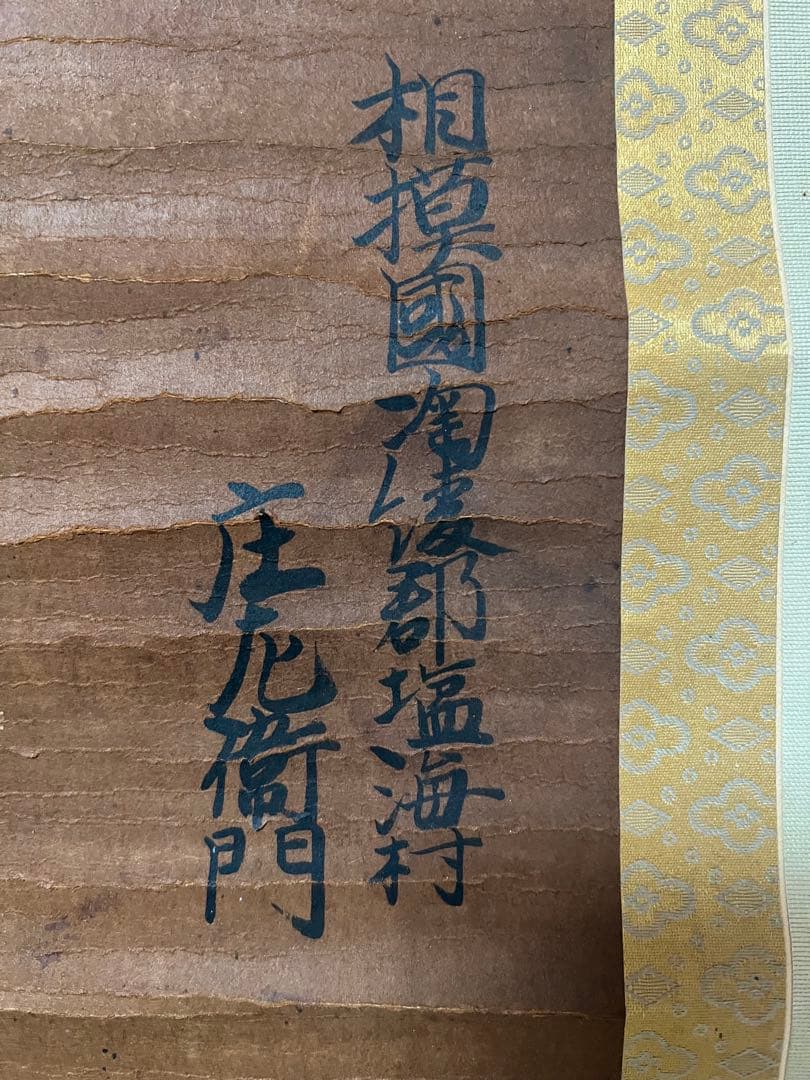 相摸國淘綾郡塩海村
庄左衛門